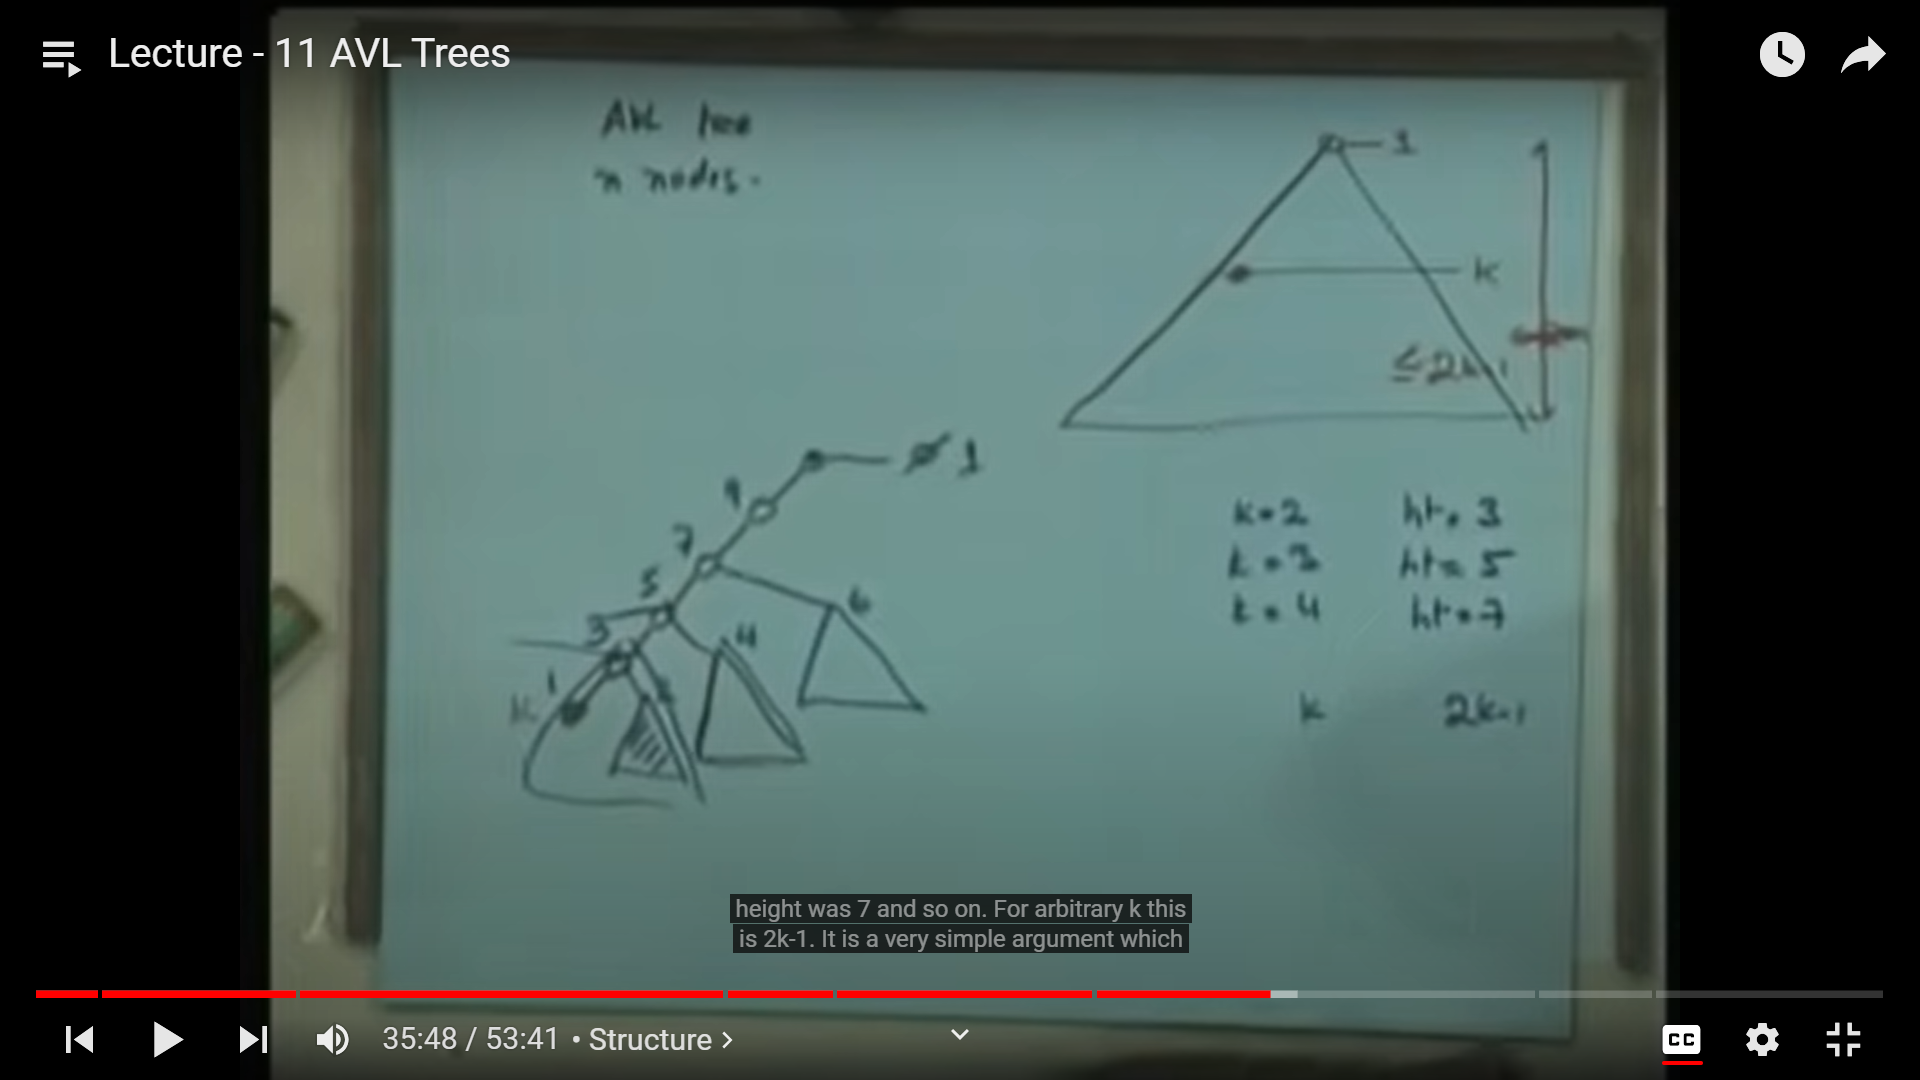 Lecture - 11 AVL Trees
AVL tree
n nodes.
1
k
≤2k-1
1
9
7
5
3
1
k
2
4
6
k=2 ht. 3
k=3 ht= 5
k=4 ht=7
k 2k-1
height was 7 and so on. For arbitrary k this
is 2k-1. It is a very simple argument which
35:48 / 53:41 • Structure >
CC